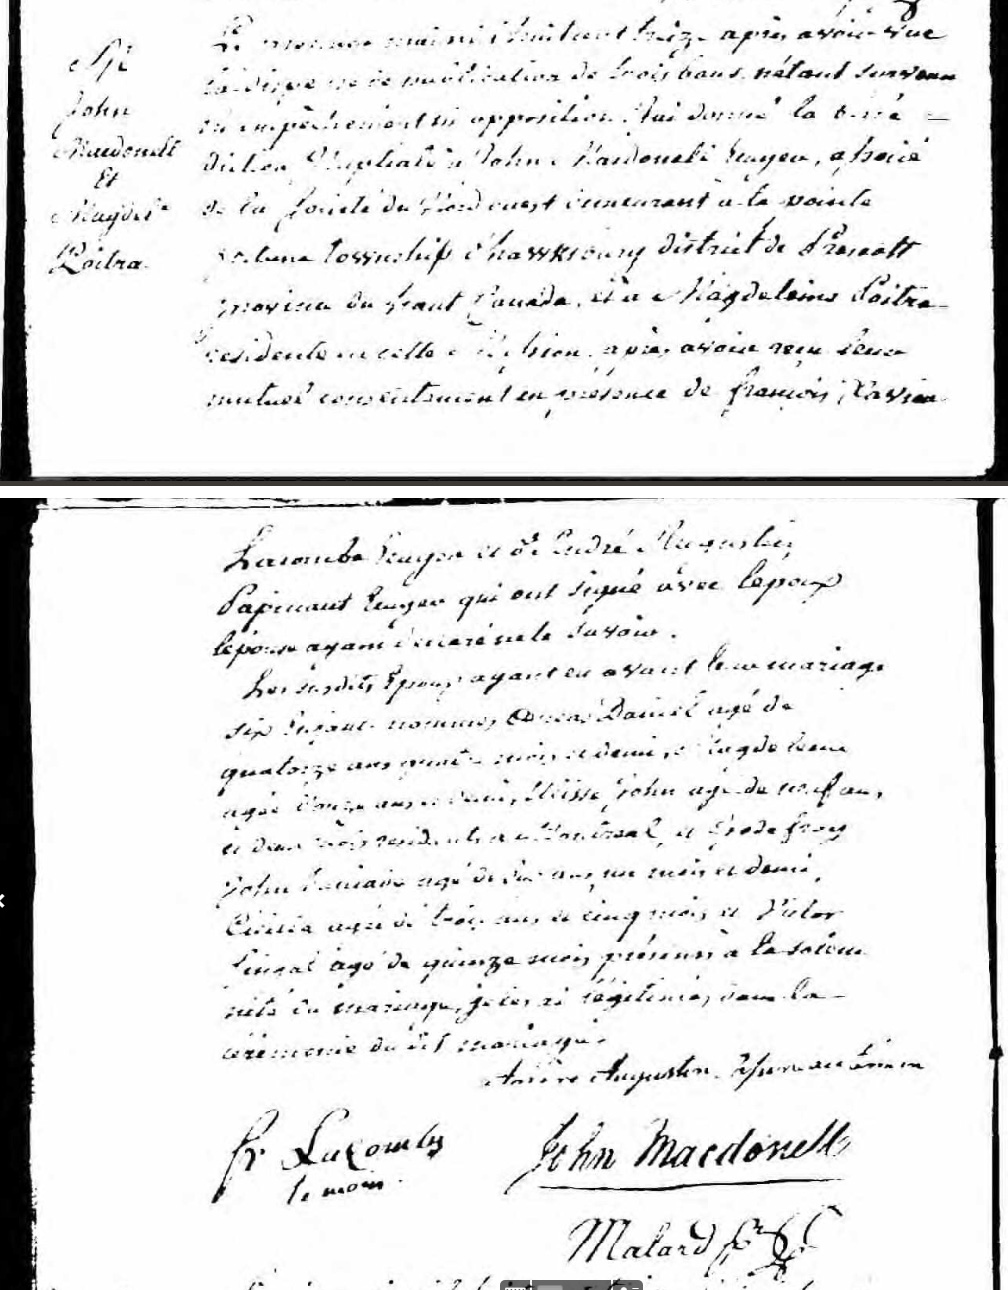 John
Macdonell
Et
Magdel^e
Poitra
Le premier mai mil huit cent treize après avoir vue
la dispense de publication de trois bans, n'étant survenu
ni empêchement ni opposition, J'ai donné la béné =
diction Nuptiale à John Macdonell Ecuyer, associé
de la Société du Nord ouest demeurant à la pointe
fortune township d'hawkesbury district de Prescott
province du haut Canada, et à Magdeleine Poitra
résidente en cette Mission, après avoir reçu leur
mutuel consentement en présence de françois Xavier
Lacombe Ecuyer et de André Augustin
Papineau Ecuyer qui ont signé avec lépoux
lépouse ayant déclaré ne le savoir.
Les susdits Epoux ayant eu avant leur mariage
six Enfans nommés Daniel agé de
quatorze ans mois et demi, Magdeleine
agée ans et demi, John agé de neuf ans,
et deux mois résidents à Montreal, et Godefroy
John agé de six ans, un mois et demi,
agée de trois ans et cinq mois, et Victor
agé de quinze mois, présens à la solem
nité du mariage, je les ai légitimés dans la
cérémonie du dit mariage.
André Augustin Papineau témoin
fr Lacombe John Macdonell
témoin
Malard